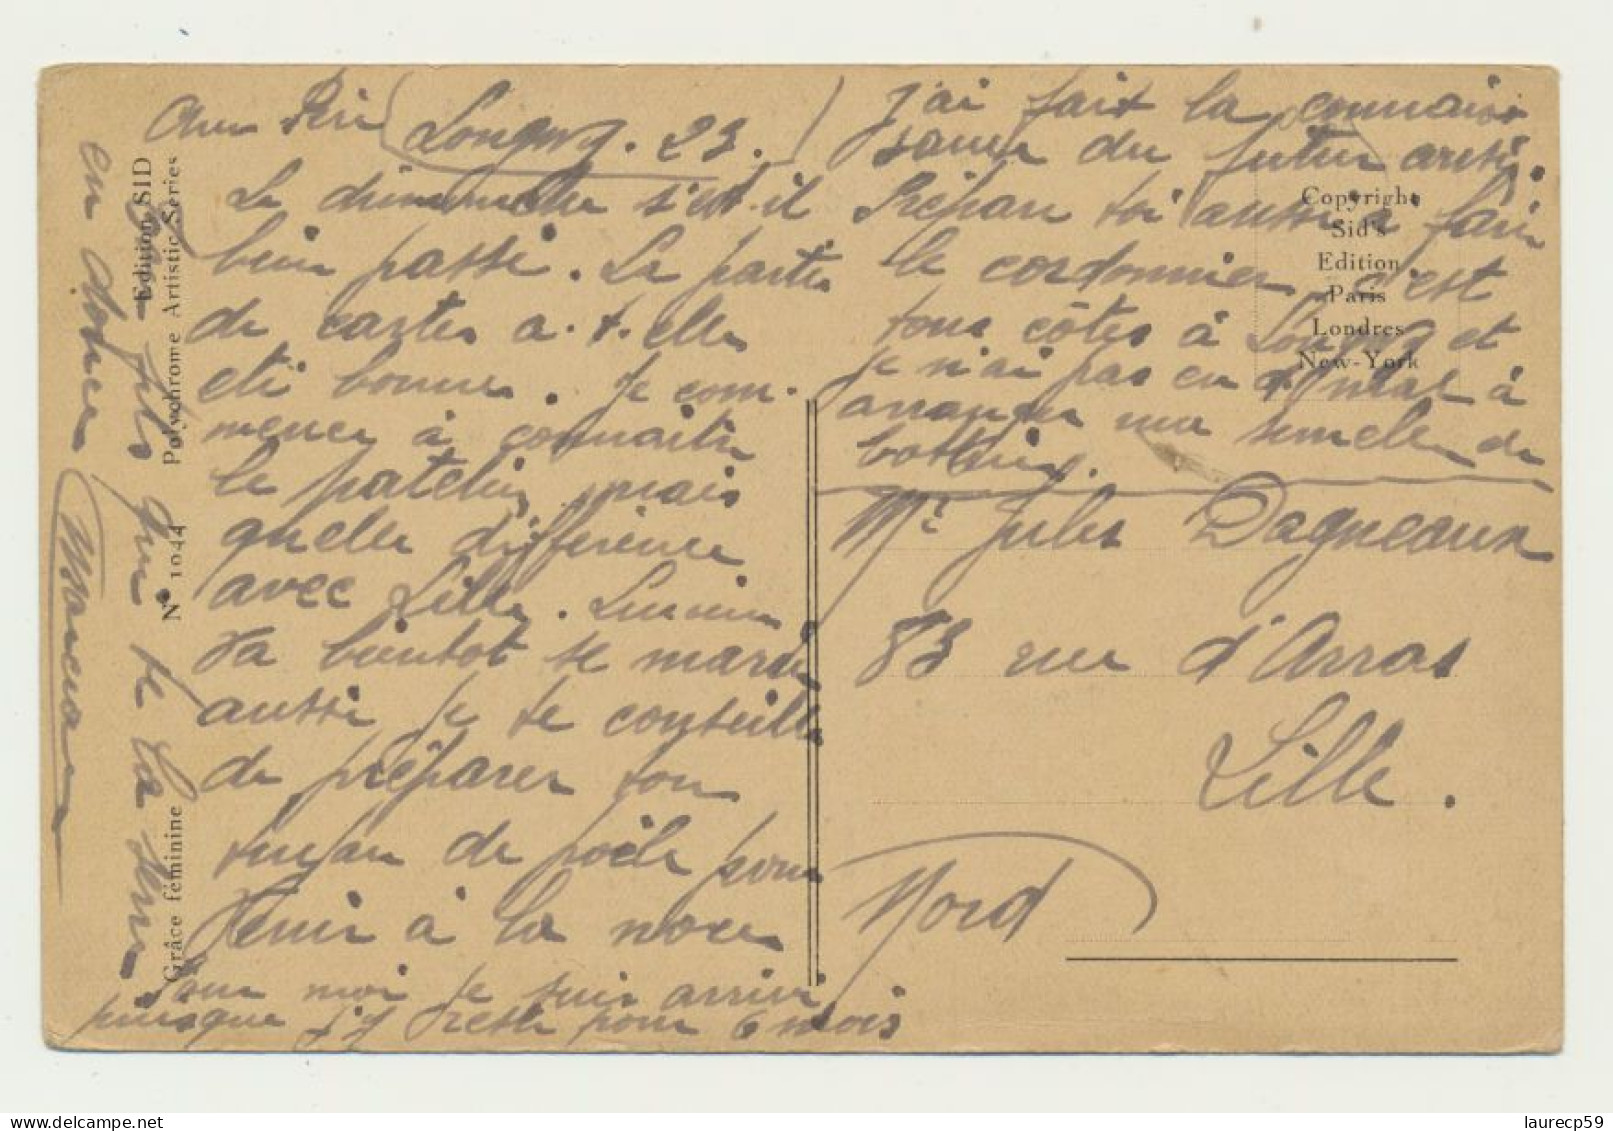 Longwy. 23.
Le dimanche s'est-il
bien passé. La partie
de cartes a-t-elle
été bonne. Je com-
mence à connaitre
le patelin, mais
quelle différence
avec Lille. Lucienne
va bientot se marier
aussi je te conseille
de préparer ton
tuyau de poêle pour
venir à la noce
Pour moi je suis arrivé
puisque j'y reste pour 6 mois
J'ai fait la connais
sance du futur
Prépare toi aussi à faire
le cordonnier, c'est
tous côtes à Longwy et
je n'ai pas eu de mal à
arranger ma semelle de
bottine.
Mr Jules Dagneaux
83 rue d'Arras
Lille.
Nord
que de la
en douce
Edition SID
Polychrome Artistic Series
N° 1044
Grâce féminine
Copyright
Sid's
Edition
Paris
Londres
New-York
laurecp59